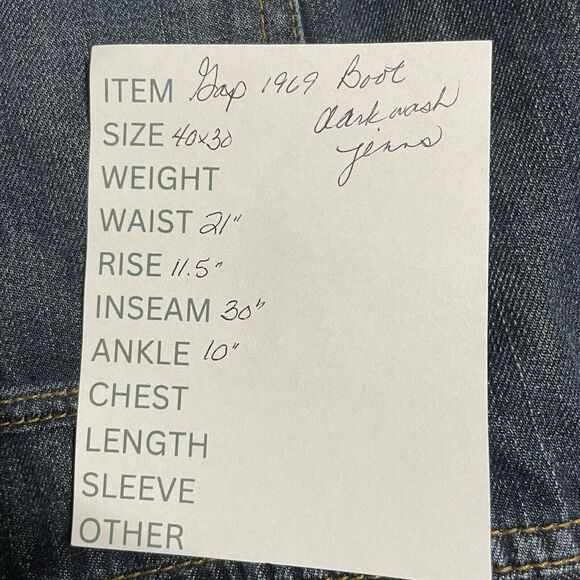 ITEM Gap 1969 Boot
dark wash
SIZE 40x30
jeans
WEIGHT
WAIST 21"
RISE 11.5"
INSEAM 30"
ANKLE 10"
CHEST
LENGTH
SLEEVE
OTHER